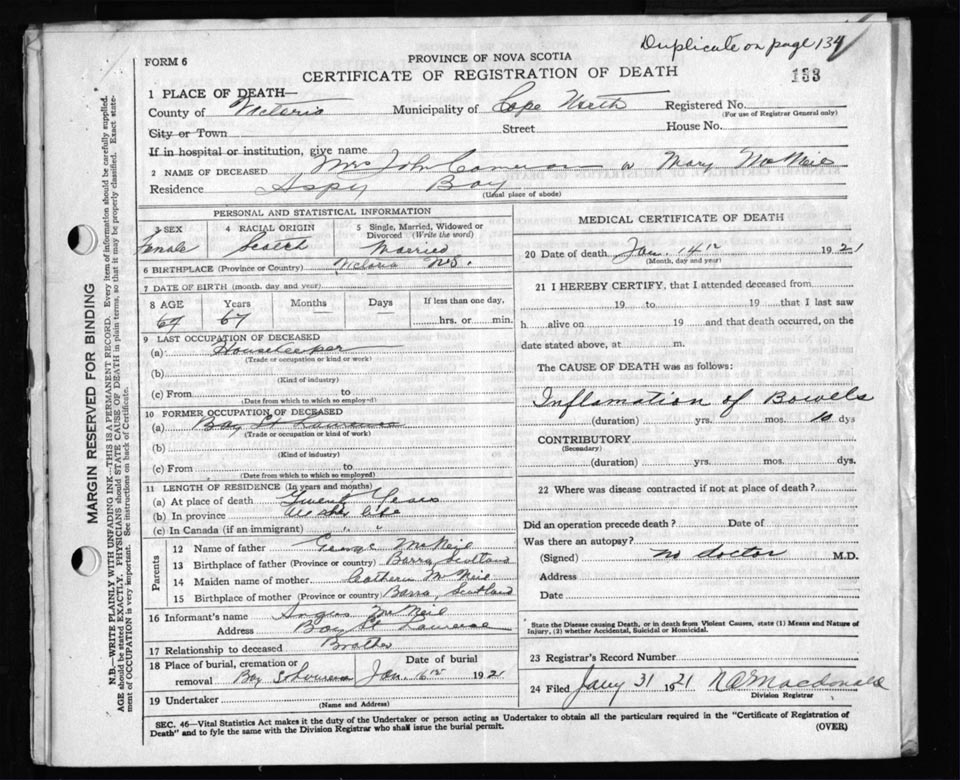 Duplicate on page 134
133
FORM 6
PROVINCE OF NOVA SCOTIA
CERTIFICATE OF REGISTRATION OF DEATH
1 PLACE OF DEATH—
County of Victoria Municipality of Cape North Registered No.
(For use of Registrar General only)
City or Town Street House No.
If in hospital or institution, give name
2 NAME OF DECEASED Mrs John Cameron or Mary McNeil
Residence Aspy Bay
(Usual place of abode)
PERSONAL AND STATISTICAL INFORMATION
3 SEX 4 RACIAL ORIGIN 5 Single, Married, Widowed or Divorced (Write the word)
Female Scotch Married
6 BIRTHPLACE (Province or Country) Victoria N.S.
7 DATE OF BIRTH (month, day and year)
8 AGE Years Months Days If less than one day,
67 hrs. or min.
9 LAST OCCUPATION OF DECEASED
(a) Housekeeper
(Trade or occupation or kind or work)
(b)
(Kind of industry)
(c) From to
(Date from which to which so employed)
10 FORMER OCCUPATION OF DECEASED
(a) Bay St Lawrence
(Trade or occupation or kind of work)
(b)
(Kind of industry)
(c) From to
(Date from which to which so employed)
11 LENGTH OF RESIDENCE (In years and months)
(a) At place of death Twenty Years
(b) In province all her life
(c) In Canada (if an immigrant) " "
Parents
12 Name of father George McNeil
13 Birthplace of father (Province or country) Barra, Scotland
14 Maiden name of mother Catherin McNeil
15 Birthplace of mother (Province or country) Barra, Scotland
16 Informant's name Angus McNeil
Address Bay St Lawrence
17 Relationship to deceased Brother
18 Place of burial, cremation or removal Date of burial
Bay St Jan. 1921
19 Undertaker
(Name and Address)
MEDICAL CERTIFICATE OF DEATH
20 Date of death Jan. 14th 1921
(Month, day and year)
21 I HEREBY CERTIFY, that I attended deceased from
19 to 19 that I last saw
h alive on 19 and that death occurred, on the
date stated above, at m.
The CAUSE OF DEATH was as follows:
Inflamation of Bowels
(duration) yrs. mos. 10 dys
CONTRIBUTORY
(Secondary)
(duration) yrs. mos. dys.
22 Where was disease contracted if not at place of death?
Did an operation precede death? Date of
Was there an autopsy?
(Signed) no doctor M.D.
Address
Date
State the Disease causing Death, or in death from Violent Causes, state (1) Means and Nature of
Injury, (2) whether Accidental, Suicidal or Homicidal.
23 Registrar's Record Number
24 Filed Jany 31 1921 Macdonald
Division Registrar
SEC. 46—Vital Statistics Act makes it the duty of the Undertaker or person acting as Undertaker to obtain all the particulars required in the "Certificate of Registration of
Death" and to fyle the same with the Division Registrar who shall issue the burial permit. (OVER)
MARGIN RESERVED FOR BINDING
N.B.—WRITE PLAINLY WITH UNFADING INK—THIS IS A PERMANENT RECORD. Every item of information should be carefully supplied.
AGE should be stated EXACTLY. PHYSICIANS should STATE CAUSE OF DEATH in plain terms, so that it may be properly classified. Exact state-
ment of OCCUPATION is very important. See instructions on back of Certificate.